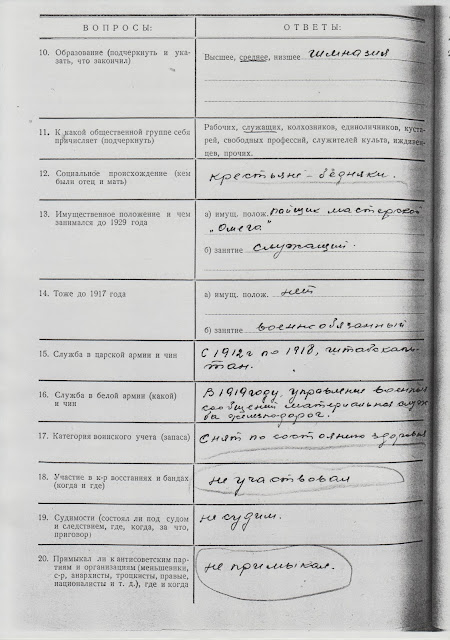 ВОПРОСЫ: ОТВЕТЫ:
10. Образование (подчеркнуть и ука-
зать, что закончил)
Высшее, среднее, низшее гимназия
11. К какой общественной группе себя
причисляет (подчеркнуть)
Рабочих, служащих, колхозников, единоличников, куста-
рей, свободных профессий, служителей культа, иждивен-
цев, прочих.
12. Социальное происхождение (кем
были отец и мать)
крестьяне – бедняки.
13. Имущественное положение и чем
занимался до 1929 года
а) имущ. полож. пойщик мастерской
„Омега"
б) занятие служащий.
14. Тоже до 1917 года
а) имущ. полож. нет
б) занятие военнообязанный
15. Служба в царской армии и чин
С 1912 г по 1918, штабскапи-
тан.
16. Служба в белой армии (какой)
и чин
В 1919 году, управление военных
сообщений материальная служ-
ба железнодорог.
17. Категория воинского учета (запаса)
Снят по состоянию здоровья
18. Участие в к-р восстаниях и бандах
(когда и где)
не участвовал
19. Судимости (состоял ли под судом
и следствием, где, когда, за что,
приговор)
не судим.
20. Примыкал ли к антисоветским пар-
тиям и организациям (меньшевики,
с-р, анархисты, троцкисты, правые,
националисты и т. д.), где и когда
не примыкал.